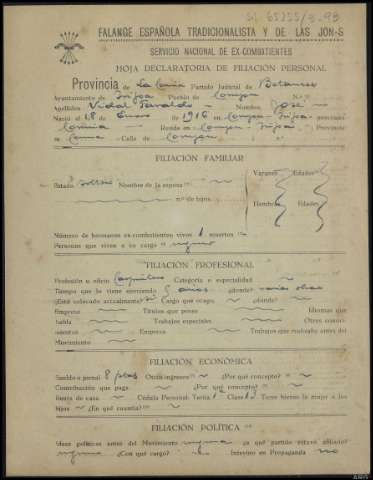 65255/3-93
FALANGE ESPAÑOLA TRADICIONALISTA Y DE LAS JON-S
SERVICIO NACIONAL DE EX-COMBATIENTES
HOJA DECLARATORIA DE FILIACIÓN PERSONAL
Provincia de La Coruña Partido Judicial de Betanzos
Ayuntamiento de Irijoa Pueblo de
Apellidos Vidal Nombre José
Nació el 18 de Enero de 1916 en Irijoa provincia
Coruña Reside en Irijoa provincia
Calle de
FILIACIÓN FAMILIAR
Varones Edades
Estado Soltero Nombre de la esposa
n.º de hijos
Hembras Edades
Número de hermanos ex-combatientes vivos 1 muertos
Personas que viven a su cargo ninguna
FILIACIÓN PROFESIONAL
Profesión u oficio Carpintero Categoría o especialidad
Tiempo que la viene ejerciendo 5 años ¿dónde? varias obras
¿Está colocado actualmente? si Cargo que ocupa ¿dónde?
Empresa Títulos que posee Idiomas que
habla Trabajos especiales Otros conoci-
mientos Empresa Trabajos que realizaba antes del
Movimiento
FILIACIÓN ECONÓMICA
Sueldo o jornal 8 ptas Otros ingresos ¿Por qué concepto?
Contribución que paga ¿Por qué concepto?
Renta de casa Cédula Personal: Tarifa 1ª Clase Tiene bienes la mujer o los
hijos ¿En qué cuantía?
FILIACIÓN POLÍTICA
Ideas políticas antes del Movimiento ninguna ¿a qué partido estuvo afiliado?
ninguno ¿Con qué cargo? Intervino en Propaganda no